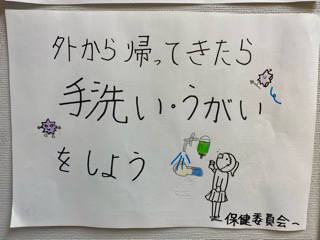 外から帰ってきたら
手洗い・うがい
をしよう
～保健委員会～